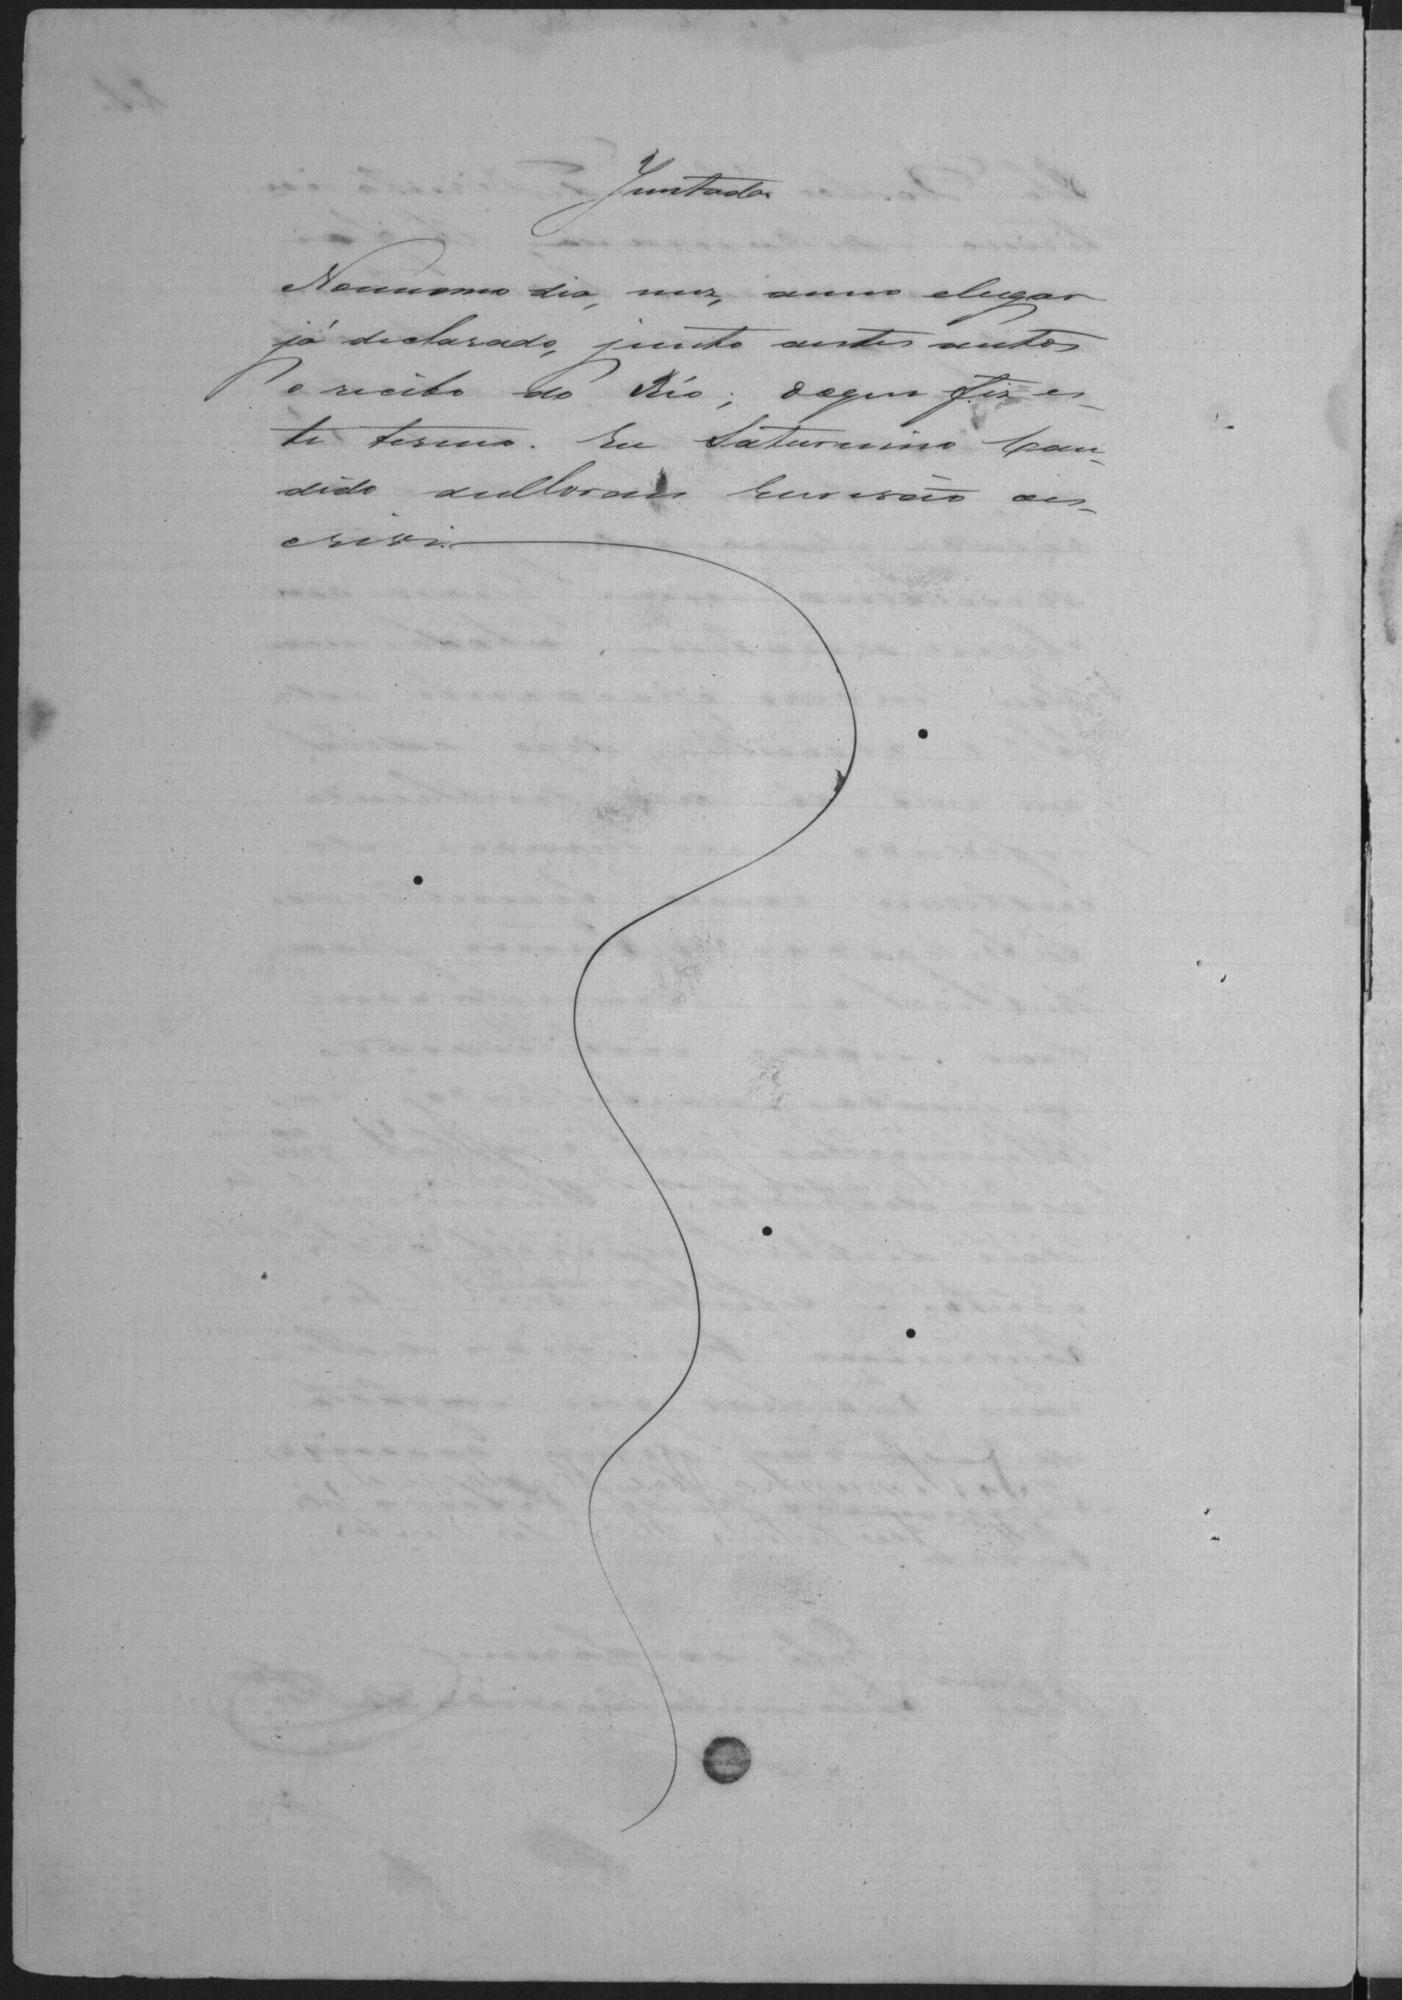 Juntada
No mesmo dia, mez, anno elugar
já declarado, junto aestes autos
o recibo do Réo; doque fiz es-
te termo. Eu Saturnino Can-
dido Escrivão oes-
crivi.